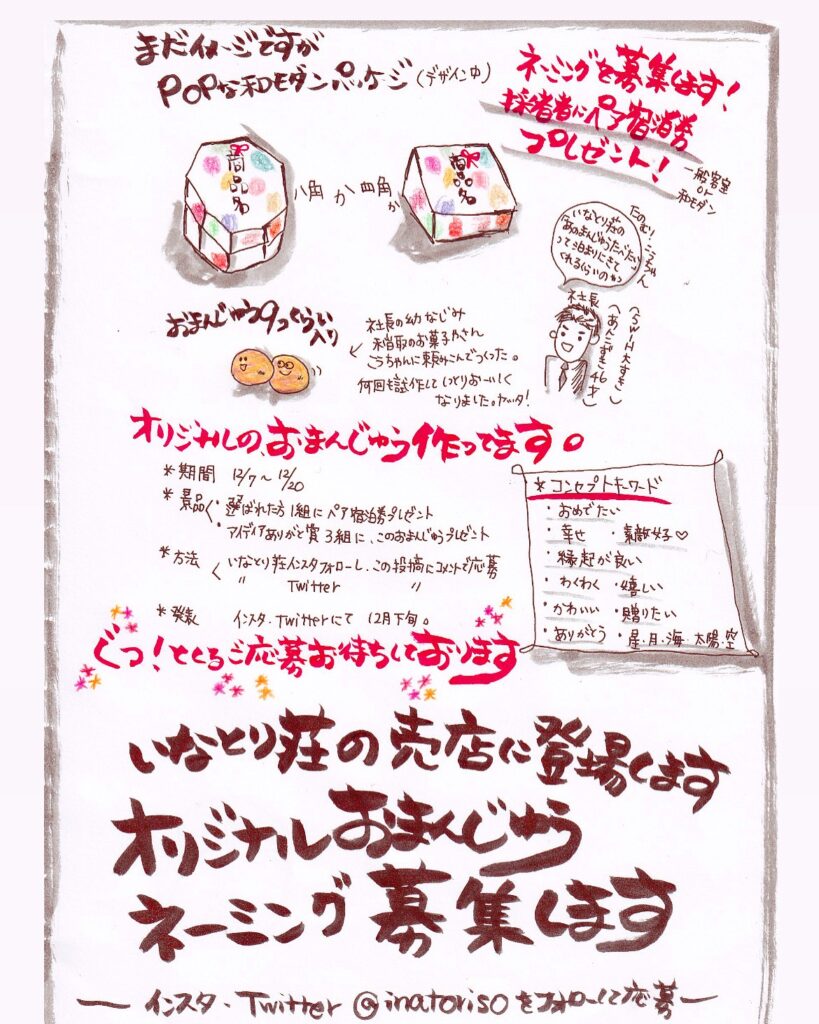 まだイメージですが
POPな和モダンパッケージ(デザイン中)
ネーミングを募集します!
採用者にペア宿泊券
プレゼント!
一般客室
or
和モダン
商品名
八角か四角か
商品名
たのむよ、こうちゃん
いなとり荘の
あのまんじゅうたべたい
って泊まりにきて
くれるくらいのが
社長
(SWIH大すき)
(あんこずき46才)
おまんじゅう9つくらい
入り
社長の幼なじみ
稲取のお菓子やさん
こうちゃんに頼みこんでつくった。
何回も試作していとりおーいしく
なりました。ヤッタ!
オリジナルの、おまんじゅう作ってます。
*期間 12/7〜12/20
*景品 ・選ばれた方1組にペア宿泊券プレゼント
・アイディアありがと賞3組に、このおまんじゅうプレゼント
*方法 いなとり荘インスタフォローし、この投稿にコメントで応募
〃 Twitter 〃
*発表 インスタ・Twitterにて 12月下旬。
*コンセプトキーワード
・おめでたい
・幸せ ・素敵好♡
・縁起が良い
・わくわく ・嬉しい
・かわいい ・贈りたい
・ありがとう ・星・月・海・太陽・空
ぐっ!とくるご応募お待ちしております
いなとり荘の売店に登場します
オリジナルおまんじゅう
ネーミング募集します
ー インスタ・Twitter @inatorisoをフォローして応募 ー